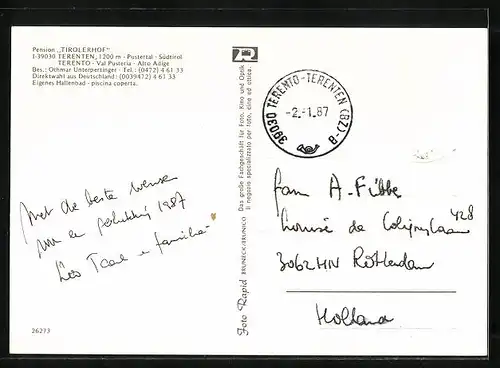 Pension „TIROLERHOF"
I-39030 TERENTEN, 1200 m - Pustertal - Südtirol
TERENTO - Val Pusteria - Alto Adige
Bes.: Othmar Unterpertinger - Tel.: (0472) 4 61 33
Direktwahl aus Deutschland: (0039472) 4 61 33
Eigenes Hallenbad - piscina coperta.
Met de beste wensen
1987
familie
26273
Foto Rapid BRUNECK/BRUNICO
Das große Fachgeschäft für Foto, Kino und Optik
Il negozio specializzato per foto, cine ed ottica.
39030 TERENTO-TERENTEN (BZ)-B
-2.-1.87
Fam A-Fibbe
Louise de Colignylaan 428
3062HN Rotterdam
Holland